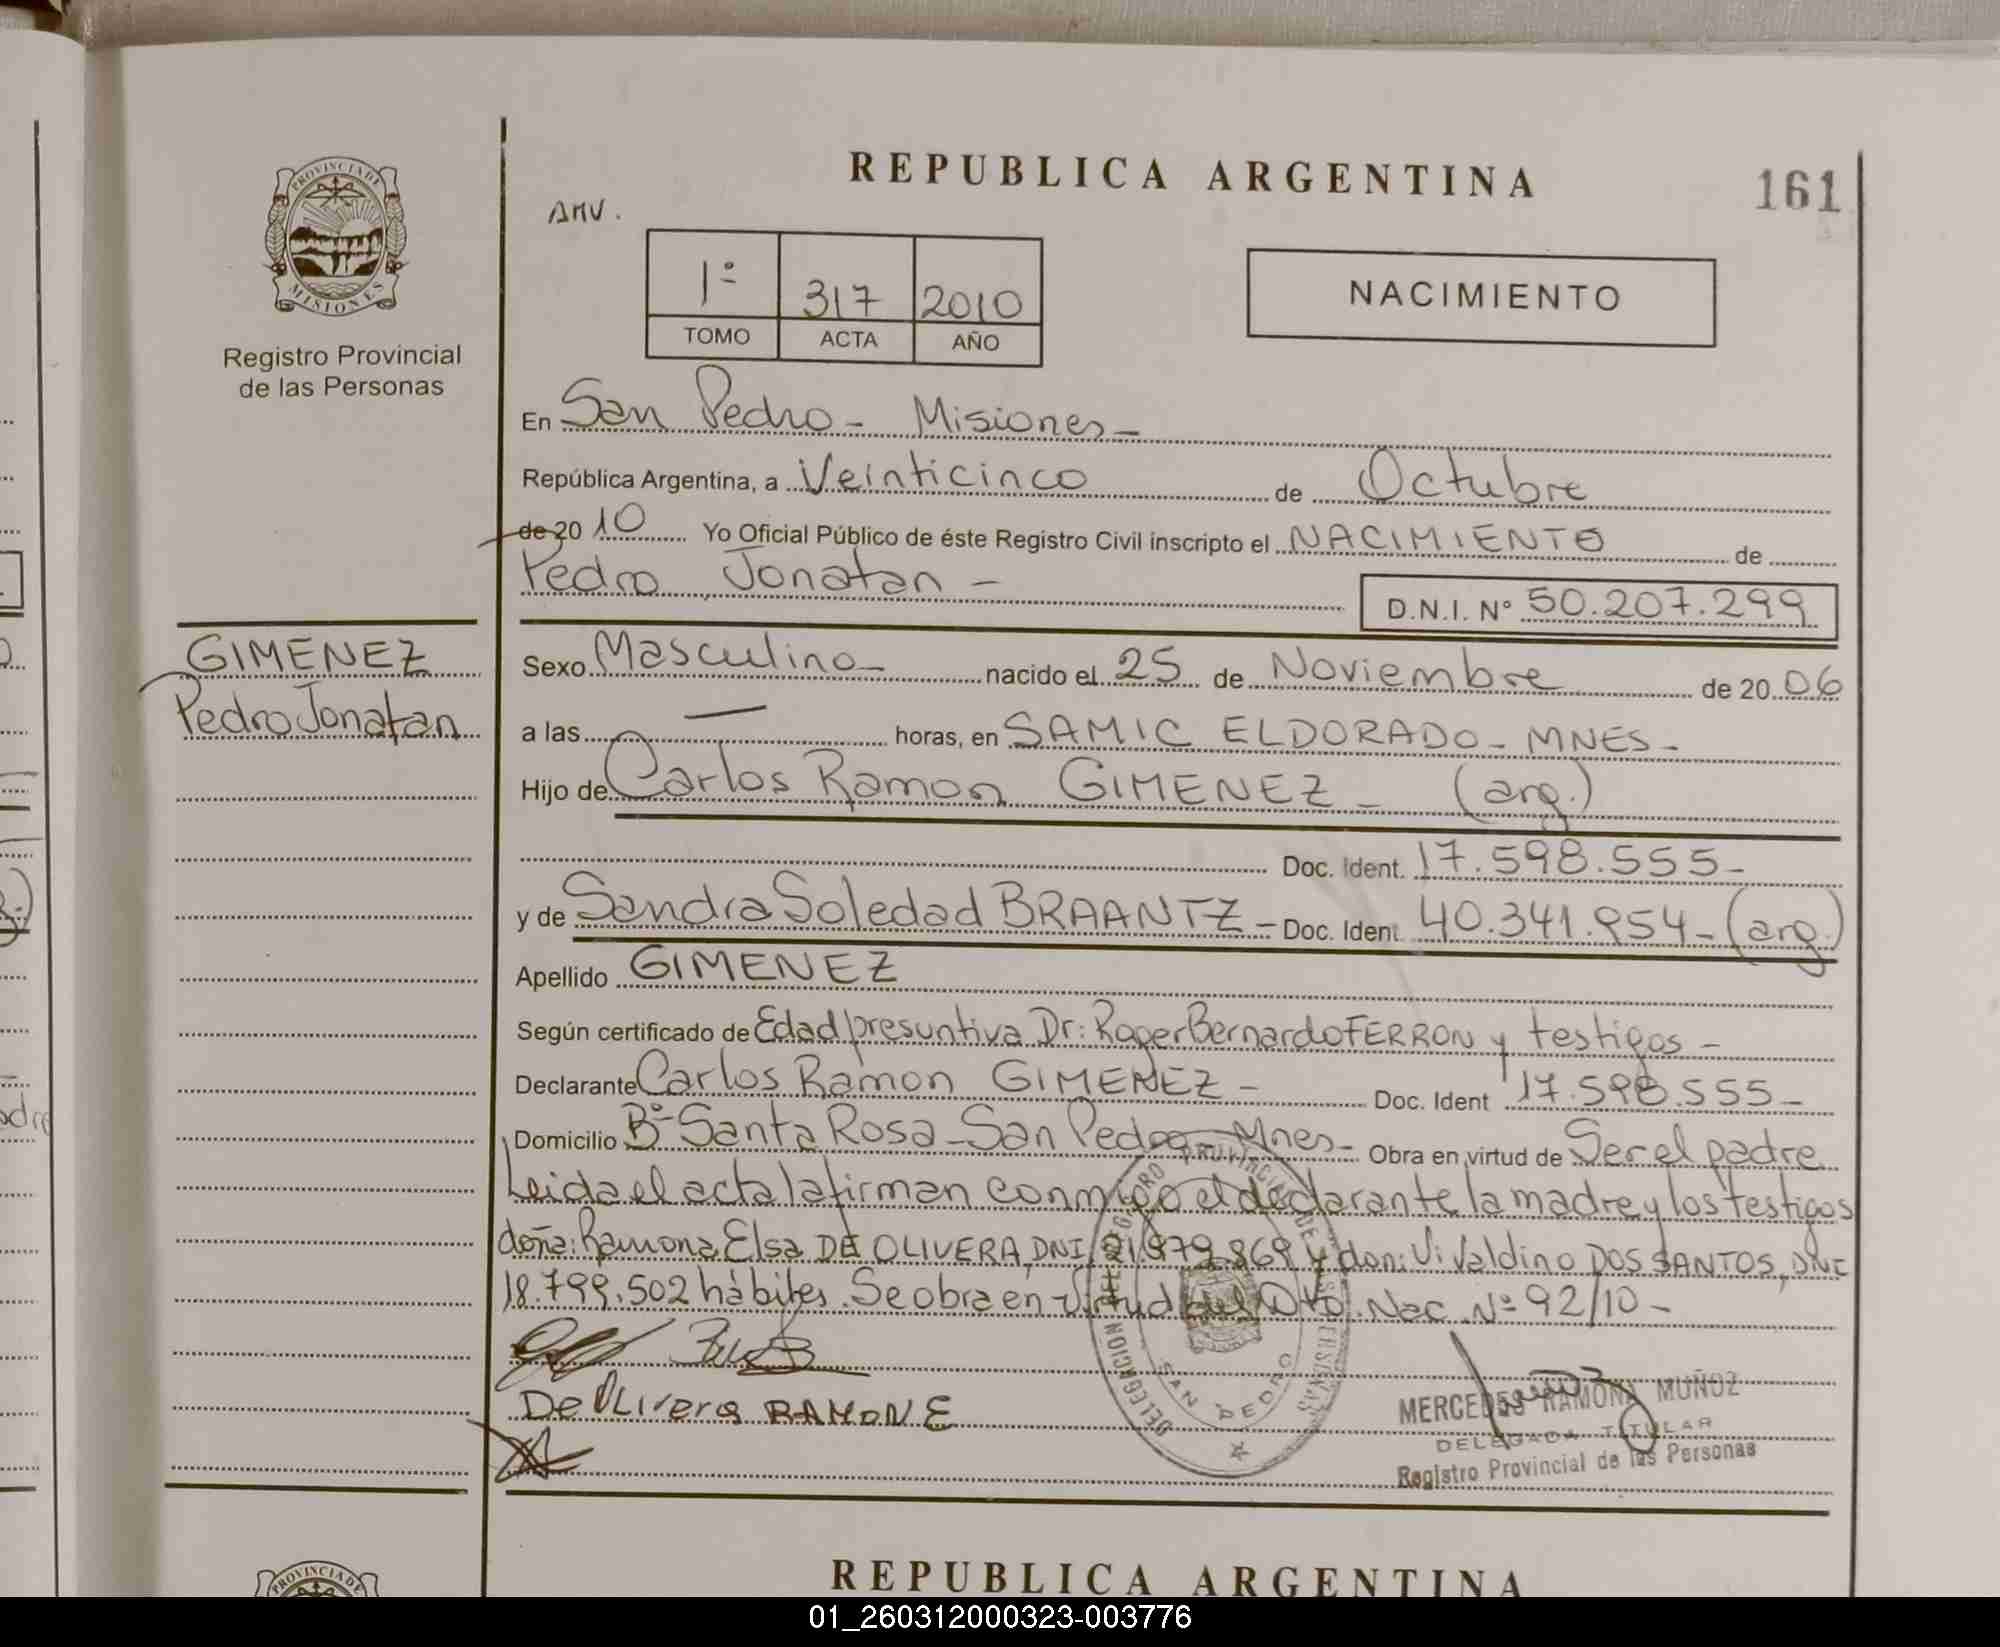 PROVINCIA DE
MISIONES
Registro Provincial
de las Personas
REPUBLICA ARGENTINA
161
AMV.
1º 317 2010
TOMO ACTA AÑO
NACIMIENTO
En San Pedro - Misiones -
República Argentina, a Veinticinco de Octubre
de 20 10 Yo Oficial Público de éste Registro Civil inscripto el NACIMIENTO de
Pedro Jonatan -
D.N.I. Nº 50.207.299
GIMENEZ
Pedro Jonatan
Sexo Masculino - nacido el 25 de Noviembre de 20 06
a las — horas, en SAMIC ELDORADO - MNES -
Hijo de Carlos Ramon GIMENEZ - (arg.)
Doc. Ident. 17.598.555 -
y de Sandra Soledad BRAANTZ - Doc. Ident. 40.341.954 - (arg.)
Apellido GIMENEZ
Según certificado de Edad presuntiva Dr: Roger Bernardo FERRON y testigos -
Declarante Carlos Ramon GIMENEZ - Doc. Ident 17.598.555 -
Domicilio Bº Santa Rosa - San Pedro - Mnes - Obra en virtud de Ser el padre
Leida el acta la firman conmigo el declarante la madre y los testigos
doña: Ramona Elsa DE OLIVERA, DNI 21.979.869 y don: Vivaldino DOS SANTOS, DNI
18.799.502 hábiles. Se obra en virtud del Dto. Nac. Nº 92/10 -
De OLivera RAMON E
DELEGACION DEL REGISTRO PROVINCIAL DE LAS PERSONAS
SAN PEDRO
MERCEDES RAMONA MUÑOZ
DELEGADA TITULAR
Registro Provincial de las Personas
PROVINCIA DE
REPUBLICA ARGENTINA
01_260312000323-003776